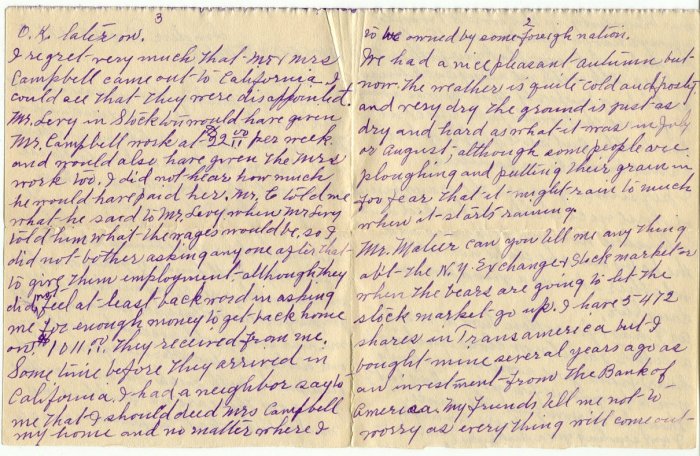 2
to be owned by some foreign nation.
We had a nice pleasant autumn but
now the weather is quite cold and frosty
and very dry the ground is just as
dry and hard as what it was in July
or August, although some people are
ploughing and putting their grain in
for fear that it might rain to much
when it starts raining.
Mr. Matier can you tell me any thing
abt the N.Y. Exchange & Stock market or
when the bears are going to let the
stock market go up. I have 5472
shares in Transamerica but I
bought mine several years ago as
an investment from the Bank of
America. My friends tell me not to
worry as everything will come out
3
O.K. later on.
I regret very much that Mr & Mrs
Campbell came out to California. I
could see that they were disappointed.
Mr. Levy in Stockton would have given
Mr. Campbell work at $22 00 per week
and would also have given the Mrs
work too. I did not hear how much
he would have paid her. Mr. C told me
what he said to Mr. Levy when Mr Levy
told him what the wages would be, so I
did not bother asking any one after that
to give them employment although they
did not feel at least backword in asking
me for enough money to get back home
on. they received from me.
Some time before they arrived in
California, I had a neighbor say to
me that I should deed Mrs Campbell
my home and no matter where I